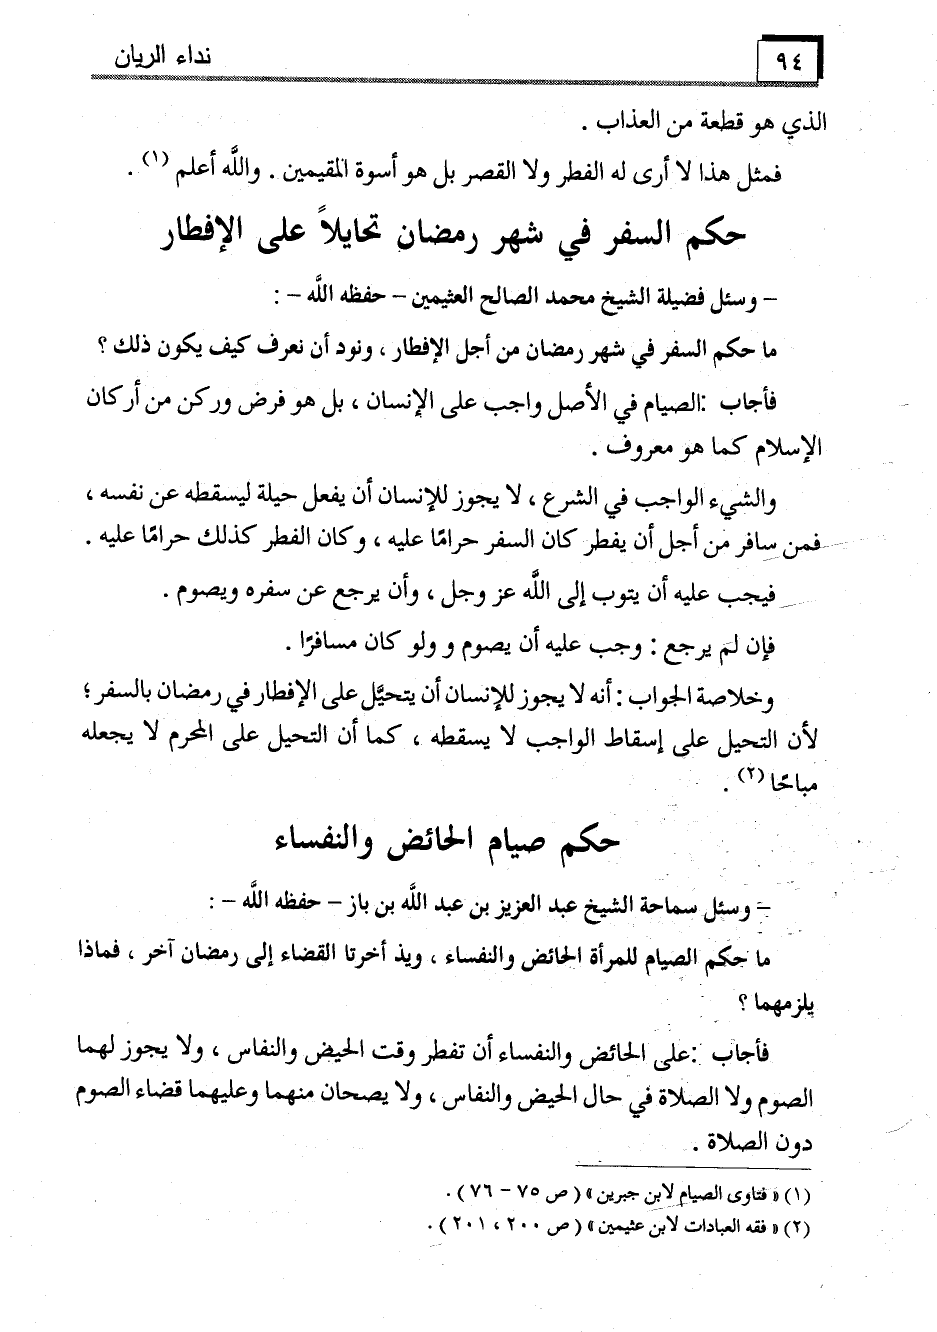 ٩٤
نداء الريان
الذي هو قطعة من العذاب .
فمثل هذا لا أرى له الفطر ولا القصر بل هو أسوة المقيمين . واللَّه أعلم (١) .
حكم السفر في شهر رمضان تحايلاً على الإفطار
– وسئل فضيلة الشيخ محمد الصالح العثيمين – حفظه اللَّه – :
ما حكم السفر في شهر رمضان من أجل الإفطار ، ونود أن نعرف كيف يكون ذلك ؟
فأجاب :الصيام في الأصل واجب على الإنسان ، بل هو فرض وركن من أركان
الإسلام كما هو معروف .
والشيء الواجب في الشرع ، لا يجوز للإنسان أن يفعل حيلة ليسقطه عن نفسه ،
فمن سافر من أجل أن يفطر كان السفر حرامًا عليه ، وكان الفطر كذلك حرامًا عليه .
فيجب عليه أن يتوب إلى اللَّه عز وجل ، وأن يرجع عن سفره ويصوم .
فإن لم يرجع : وجب عليه أن يصوم و ولو كان مسافرًا .
وخلاصة الجواب : أنه لا يجوز للإنسان أن يتحيَّل على الإفطار في رمضان بالسفر ؛
لأن التحيل على إسقاط الواجب لا يسقطه ، كما أن التحيل على المحرم لا يجعله
مباحًا (٢) .
حكم صيام الحائض والنفساء
– وسئل سماحة الشيخ عبد العزيز بن عبد اللَّه بن باز – حفظه اللَّه – :
ما حكم الصيام للمرأة الحائض والنفساء ، ويذ أخرتا القضاء إلى رمضان آخر ، فماذا
يلزمهما ؟
فأجاب :على الحائض والنفساء أن تفطر وقت الحيض والنفاس ، ولا يجوز لهما
الصوم ولا الصلاة في حال الحيض والنفاس ، ولا يصحان منهما وعليهما قضاء الصوم
دون الصلاة .
(١) « فتاوى الصيام لابن جبرين » ( ص ٧٥ – ٧٦ ) .
(٢) « فقه العبادات لابن عثيمين » ( ص ٢٠٠ ، ٢٠١ ) .